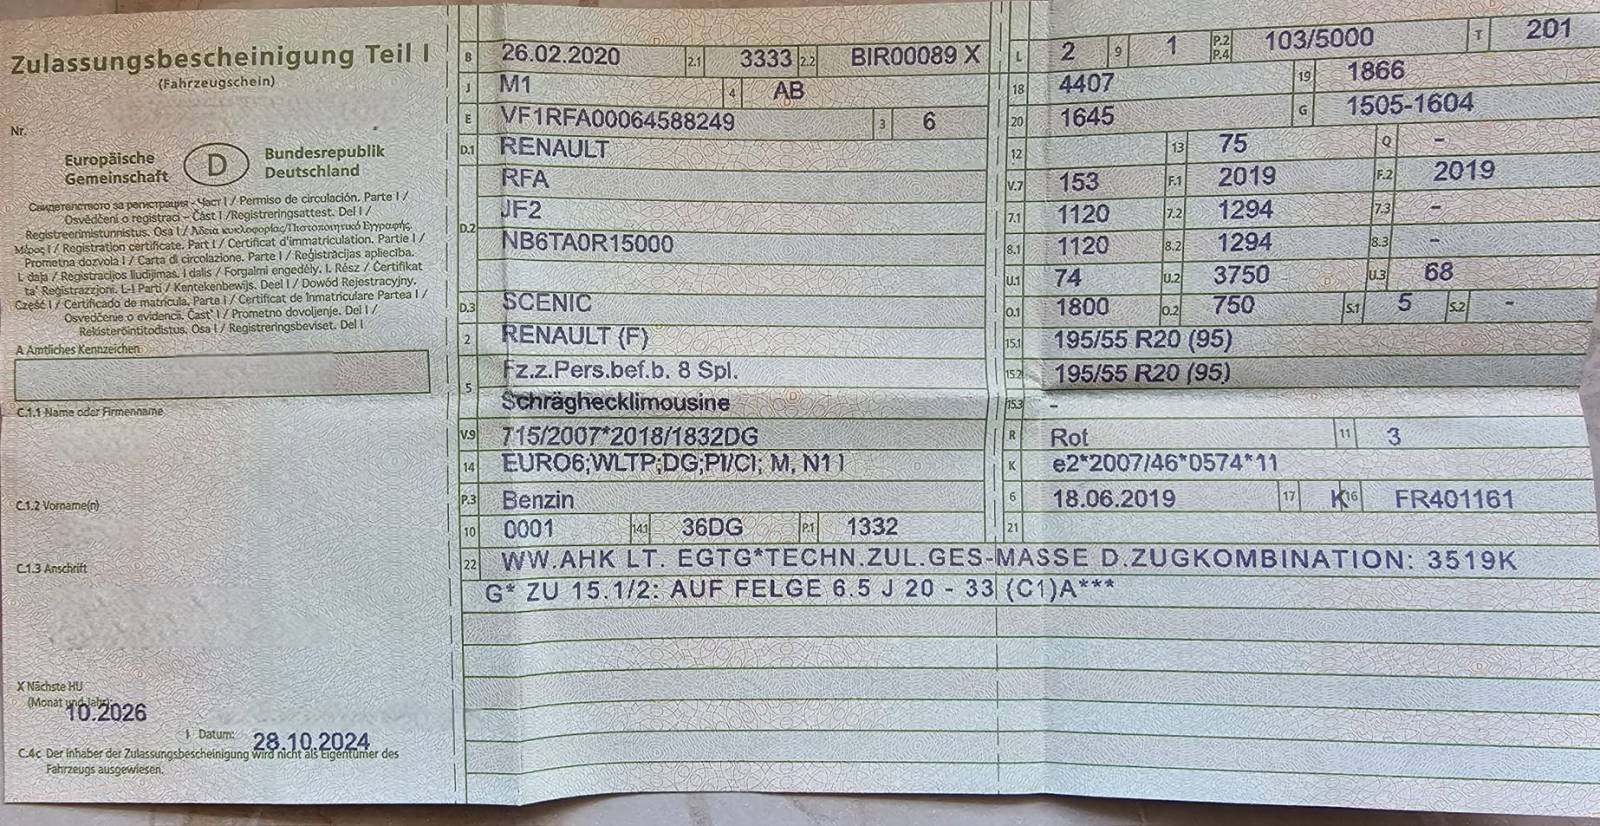 Zulassungsbescheinigung Teil I
(Fahrzeugschein)
Nr.
Europäische Gemeinschaft D Bundesrepublik Deutschland
Свидетелството за регистрация - Част I / Permiso de circulación. Parte I /
Osvědčení o registraci – Část I / Registreringsattest. Del I /
Registreerimistunnistus. Osa I / Άδεια κυκλοφορίας/Πιστοποιητικό Εγγραφής.
Μέρος I / Registration certificate. Part I / Certificat d'immatriculation. Partie I /
Prometna dozvola I / Carta di circolazione. Parte I / Reģistrācijas apliecība.
I. daļa / Registracijos liudijimas. I dalis / Forgalmi engedély. I. Rész / Ċertifikat
ta' Reġistrazzjoni. L-I Parti / Kentekenbewijs. Deel I / Dowód Rejestracyjny.
Część I / Certificado de matrícula. Parte I / Certificat de înmatriculare Partea I /
Osvedčenie o evidencii. Časť I / Prometno dovoljenje. Del I /
Rekisteröintitodistus. Osa I / Registreringsbeviset. Del I
A Amtliches Kennzeichen
C.1.1 Name oder Firmenname
C.1.2 Vorname(n)
C.1.3 Anschrift
X Nächste HU
(Monat und Jahr)
10.2026
I Datum: 28.10.2024
C.4c Der Inhaber der Zulassungsbescheinigung wird nicht als Eigentümer des
Fahrzeugs ausgewiesen.
B 26.02.2020 2.1 3333 2.2 BIR00089 X
J M1 4 AB
E VF1RFA00064588249 3 6
D.1 RENAULT
RFA
D.2 JF2
NB6TA0R15000
D.3 SCENIC
2 RENAULT (F)
5 Fz.z.Pers.bef.b. 8 Spl.
Schräghecklimousine
V.9 715/2007*2018/1832DG
14 EURO6;WLTP;DG;PI/CI; M, N1 I
P.3 Benzin
10 0001 14.1 36DG P.1 1332
L 2 9 1 P.2 P.4 103/5000 T 201
18 4407 19 1866
20 1645 G 1505-1604
12 13 75 Q -
V.7 153 F.1 2019 F.2 2019
7.1 1120 7.2 1294 7.3 -
8.1 1120 8.2 1294 8.3 -
U.1 74 U.2 3750 U.3 68
O.1 1800 O.2 750 S.1 5 S.2 -
15.1 195/55 R20 (95)
15.2 195/55 R20 (95)
15.3 -
R Rot 11 3
K e2*2007/46*0574*11
6 18.06.2019 17 K 16 FR401161
21
22 WW.AHK LT. EGTG*TECHN.ZUL.GES-MASSE D.ZUGKOMBINATION: 3519K
G* ZU 15.1/2: AUF FELGE 6.5 J 20 - 33 (C1)A***